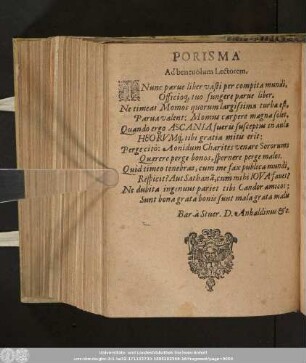 PORISMA
Ad beneuolum Lectorem.
I Nunc parue liber vasti per compita mundi,
Officioq; tuo fungere parue liber.
Ne timeat Momos quorum largissima turba est,
Parua valent; Momus carpere magna solet.
Quando ergo ASCANIA fueris susceptus in aula
HEROVM, tibi gratia mitis erit:
Perge citò: Aonidum Charites venare Sororum
Quærere perge bonos, spernere perge malos.
Quid timeo tenebras, cum me fax publica mundi,
Respicit? Aut Sathanā, cum mihi IOVA fauet?
Ne dubita ingenuus pariet tibi Candor amicos;
Sunt bona grata bonis sunt mala grata malis
Bar. à Stuer. D. Anhaldinus &c.